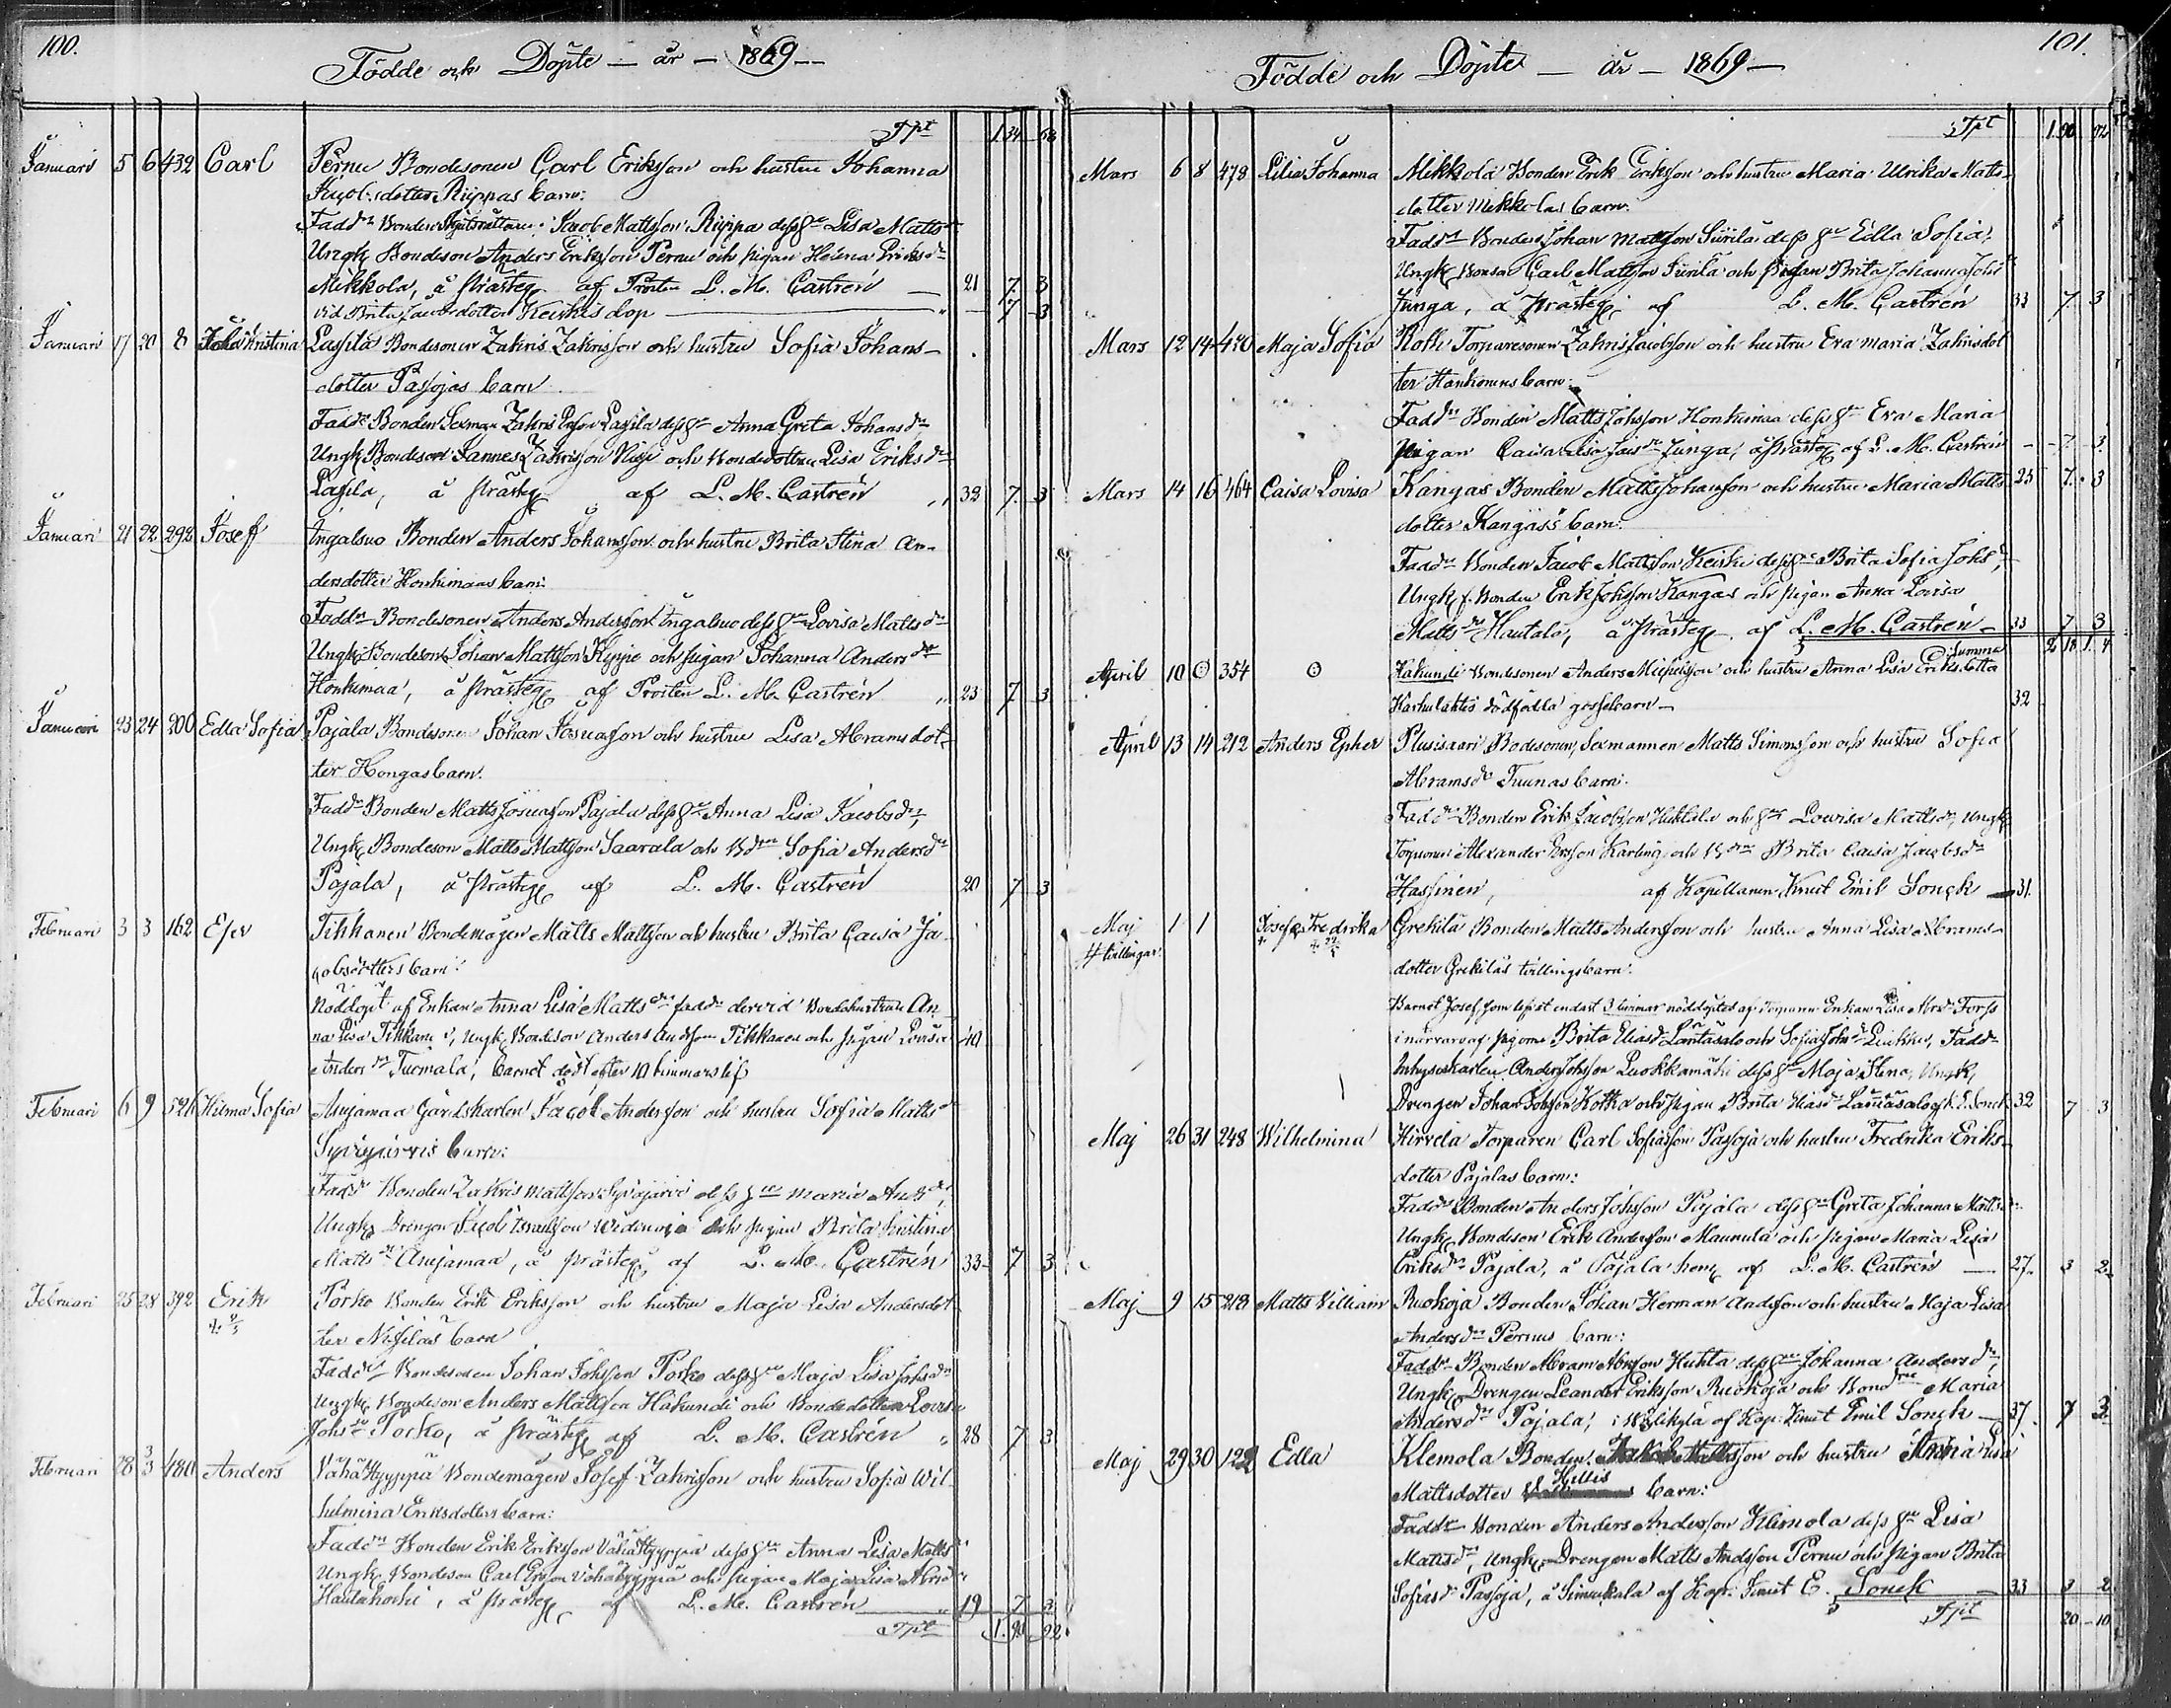 100.
Födde och Döpte — år — 1869 —
Tpt 134 68
Januari 5 6 432 Carl Pernu Bondesonen Carl Eriksson och hustru Johanna
Jacobsdotter Riippas barn:
Fadd. Bonden Jacob Mattsson Riippa dess h. Lisa Mattsdr
Ungk. Bondeson Anders Eriksson Pernu och pigan Helena Eriksdr
Mikkola, å prästeg. af Prosten L. M. Castrén — 21 7 3
vid Brita Jacobsdotter Keiskis dop — 7 3
Januari 17 20 8 Kristina Lassila Bondesonen Zakris Zakrisson och hustru Sofia Johans-
dotter Passojas barn
Fadd. Bonden Sexman Zakris Lassila dess h. Anna Greta Johansdr
Ungk. Bondeson Jannes Zakrisson och Bondedottren Lisa Eriksdr
Lassila, å prästeg. af L. M. Castrén „ 32 7 3
Januari 21 22 292 Josef Ingalsuo Bonden Anders Johansson och hustru Brita Stina An-
dersdotter Honkimaas barn:
Fadd. Bondesonen Anders Andersson Ingalsuo dess h. Lovisa Mattsdr
Ungk. Bondeson Johan Mattsson och pigan Johanna Andersdr
Honkimaa, å prästeg. af Prosten L. M. Castrén „ 23 7 3
Januari 23 24 200 Edla Sofia Pajala Bondesonen Johan Josuasson och hustru Lisa Abramsdot-
ter Hongas barn.
Fadd. Bonden Matts Josuasson Pajala dess h. Anna Lisa Jacobsdr,
Ungk. Bondeson Matts Mattsson Saarala och Bdrn Sofia Andersdr
Pajala, å prästeg. af L. M. Castrén 20 7 3
Februari 3 3 162 Efer Tihkanen Bondemågen Matts Mattsson och hustru Brita Caisa Ja-
cobsdotters barn:
Nöddöpt af Enkan Anna Lisa Mattsdr fadd. dervid Bondehustrun An-
na Lisa Tihkanen, Ungk. Bondeson Anders Andsson Tihkanen och pigan Lovisa 40
Andersdr Turmala, barnet dödt efter 10 timmars lif
Februari 6 9 526 Hilma Sofia Anejamaa Gårdskarlen Jacob Andersson och hustru Sofia Mattsdr
Syväjärvis barn:
Fadd. Bonden Zakris Mattsson Syväjärvi dess h. Maria Andsdr,
Ungk. Drengen Jacob Israelsson och pigan Brita Kristina
Mattsdr Anejamaa, å prästeg. af L. M. Castrén 33 7 3
Februari 25 28 392 Erik Porko Bonden Erik Eriksson och hustru Maja Lisa Andersdot-
ter Nissiläs barn
Fadd. Bondesonen Johan Johsson Porko dess h. Maja Lisa Johsdr
Ungk. Bondeson Anders Mattsson Hakundi och Bondedottren Lovisa
Johsdr Porko, å prästeg. af L. M. Castrén „ 28 7 3
Februari 28 3/3 480 Anders Vähä Hyyppiä Bondemågen Josef Zakrisson och hustru Sofia Wil-
helmina Eriksdotters barn:
Fadd. Bonden Erik Eriksson Vähä Hyyppiä dess h. Anna Lisa Mattsdr
Ungk. Bondeson Carl Ersson Vähähyyppiä och pigan Maja Lisa Abrsdr
Hautakoski, å prästeg. af L. M. Castrén „ 19 7 3
Tpt 1.90 92
101.
Födde och Döpte — år — 1869 —
Tpt 190 92
Mars 6 8 478 Lilia Johanna Mikkola Bonden Erik Eriksson och hustru Maria Ulrika Matts-
dotter Mikkolas barn.
Fadd. Bonden Johan Mattsson Siirilä dess h. Edla Sofia,
Ungk. Bonden Carl Mattsson Siirilä och Pigan Brita Johanna Johsdr
Junga, å prästeg. af L. M. Castrén 33 7 3
Mars 12 14 470 Maja Sofia Torparesonen Zakris Jacobsson och hustru Eva Maria Zakrisdot
ter barn:
Fadd. Bonden Matts Johsson Honkimaa dess h. Eva Maria
Pigan Caisa Lisa Junga, å prästeg. af L. M. Castrén — 7 3
Mars 14 16 464 Caisa Lovisa Kangas Bonden Matts Johansson och hustru Maria Matts 25 7 3
dotter Kangas's barn:
Fadd. Bonden Jacob Mattsson Keiski dess h. Brita Sofia Johsdr,
Ungk. f. Bonden Erik Johsson Kangas och pigan Anna Lovisa
Mattsdr Hautala, å prästeg. af L. M. Castrén 33 7 3
Summa 218 1.4
April 10 ⊙ 354 ⊙ Hakundi Bondesonen Anders Michelsson och hustru Anna Lisa Eriksdotter
dödfödda gossebarn — 32
April 13 14 212 Anders Epher Plusisaari Bodesonen, Sexmannen Matts Simonsson och hustru Sofia
Abramsdr Tuunas barn:
Fadd. Bonden Erik Jacobsson Huhtala och h. Lovisa Mattsdr, Ungk.
Alexander Ersson Karling och Bdrn Brita Caisa Jacobsdr
Hassinen, af Kapellanen Knut Emil Sonck — 31.
Maj 1 1 Josef & Fredrika Grekilä Bonden Matts Andersson och hustru Anna Lisa Abrams-
# tvillingar dotter Grekiläs tvillingsbarn:
Barnet Josef, som lefvat endast 3 timmar nöddöptes af Enkan Lisa Abrdr Forss
i närvaro af pigorna Brita Eliasdr Lantasalo och Sofia Johsdr Leukku, Fadd.
Inhyseskarlen Anders Johsson Luokkamäki dess h. Maja Stina, Ungk.
Drengen Johan Kotka och pigan Brita Eliasdr Lantasalo af K. E. Sonck 32 7 3
Maj 26 31 248 Wilhelmina Hirvelä Torparen Carl Sofiasson Passoja och hustru Fredrika Eriks-
dotter Pajalas barn:
Fadd. Bonden Anders Johsson Pajala dess h. Greta Johanna Mattsdr
Ungk. Bondeson Erik Andersson Maunula och pigan Maria Lisa
Eriksdr Pajala, å Pajala hem. af L. M. Castrén — 27 3 2
Maj 9 15 218 Matts William Ruokoja Bonden Johan Herman Andsson och hustru Maja Lisa
Andersdr Pernus barn:
Fadd. Bonden Abram Abrsson Huhta dess h. Johanna Andersdr,
Ungk. Drengen Leander Eriksson Ruokoja och Bonddrn Maria
Andersdr Pajala, i Välikylä af Kap. Knut Emil Sonck — 37 7 3
Maj 29 30 122 Edla Klemola Bonden Jakob Mattsson och hustru Anna Lisa
Mattsdotter Hillis barn:
Fadd. Bonden Anders Andersson Klemola dess h. Lisa
Mattsdr, Ungk. Drengen Matts Andsson Pernu och pigan Brita
Sofiasdr Passoja, å Simukala af Kap. Knut E. Sonck — 33 3 2
Tpt 20 10